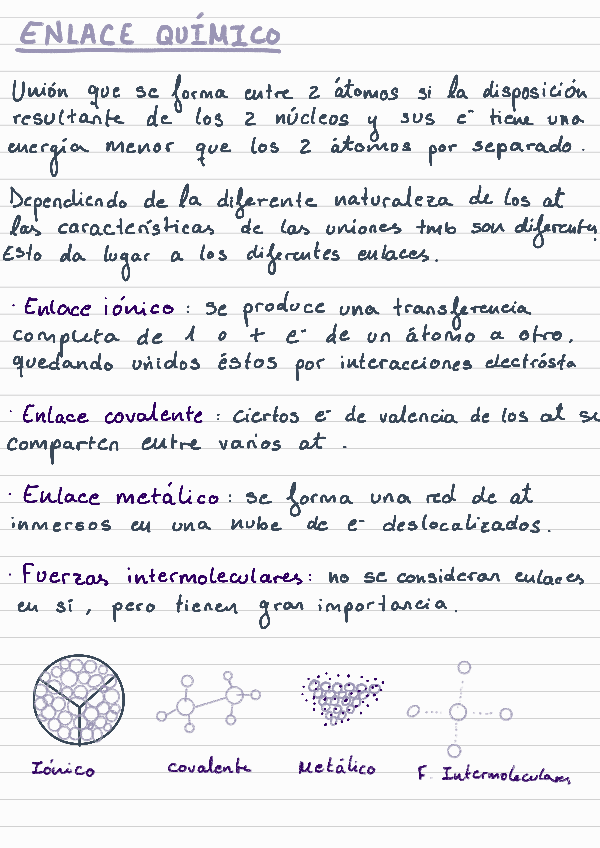 ENLACE QUÍMICO
Unión que se forma entre 2 átomos si la disposición
resultante de los 2 núcleos y sus e⁻ tiene una
energía menor que los 2 átomos por separado.
Dependiendo de la diferente naturaleza de los at
las características de las uniones tmb son diferentes
Esto da lugar a los diferentes enlaces.
· Enlace iónico: se produce una transferencia
completa de 1 o + e⁻ de un átomo a otro,
quedando unidos éstos por interacciones electrósta
· Enlace covalente: ciertos e⁻ de valencia de los at se
comparten entre varios at.
· Enlace metálico: se forma una red de at
inmersos en una nube de e⁻ deslocalizados.
· Fuerzas intermoleculares: no se consideran enlaces
en sí, pero tienen gran importancia.
Iónico covalente Metálico F. Intermoleculares